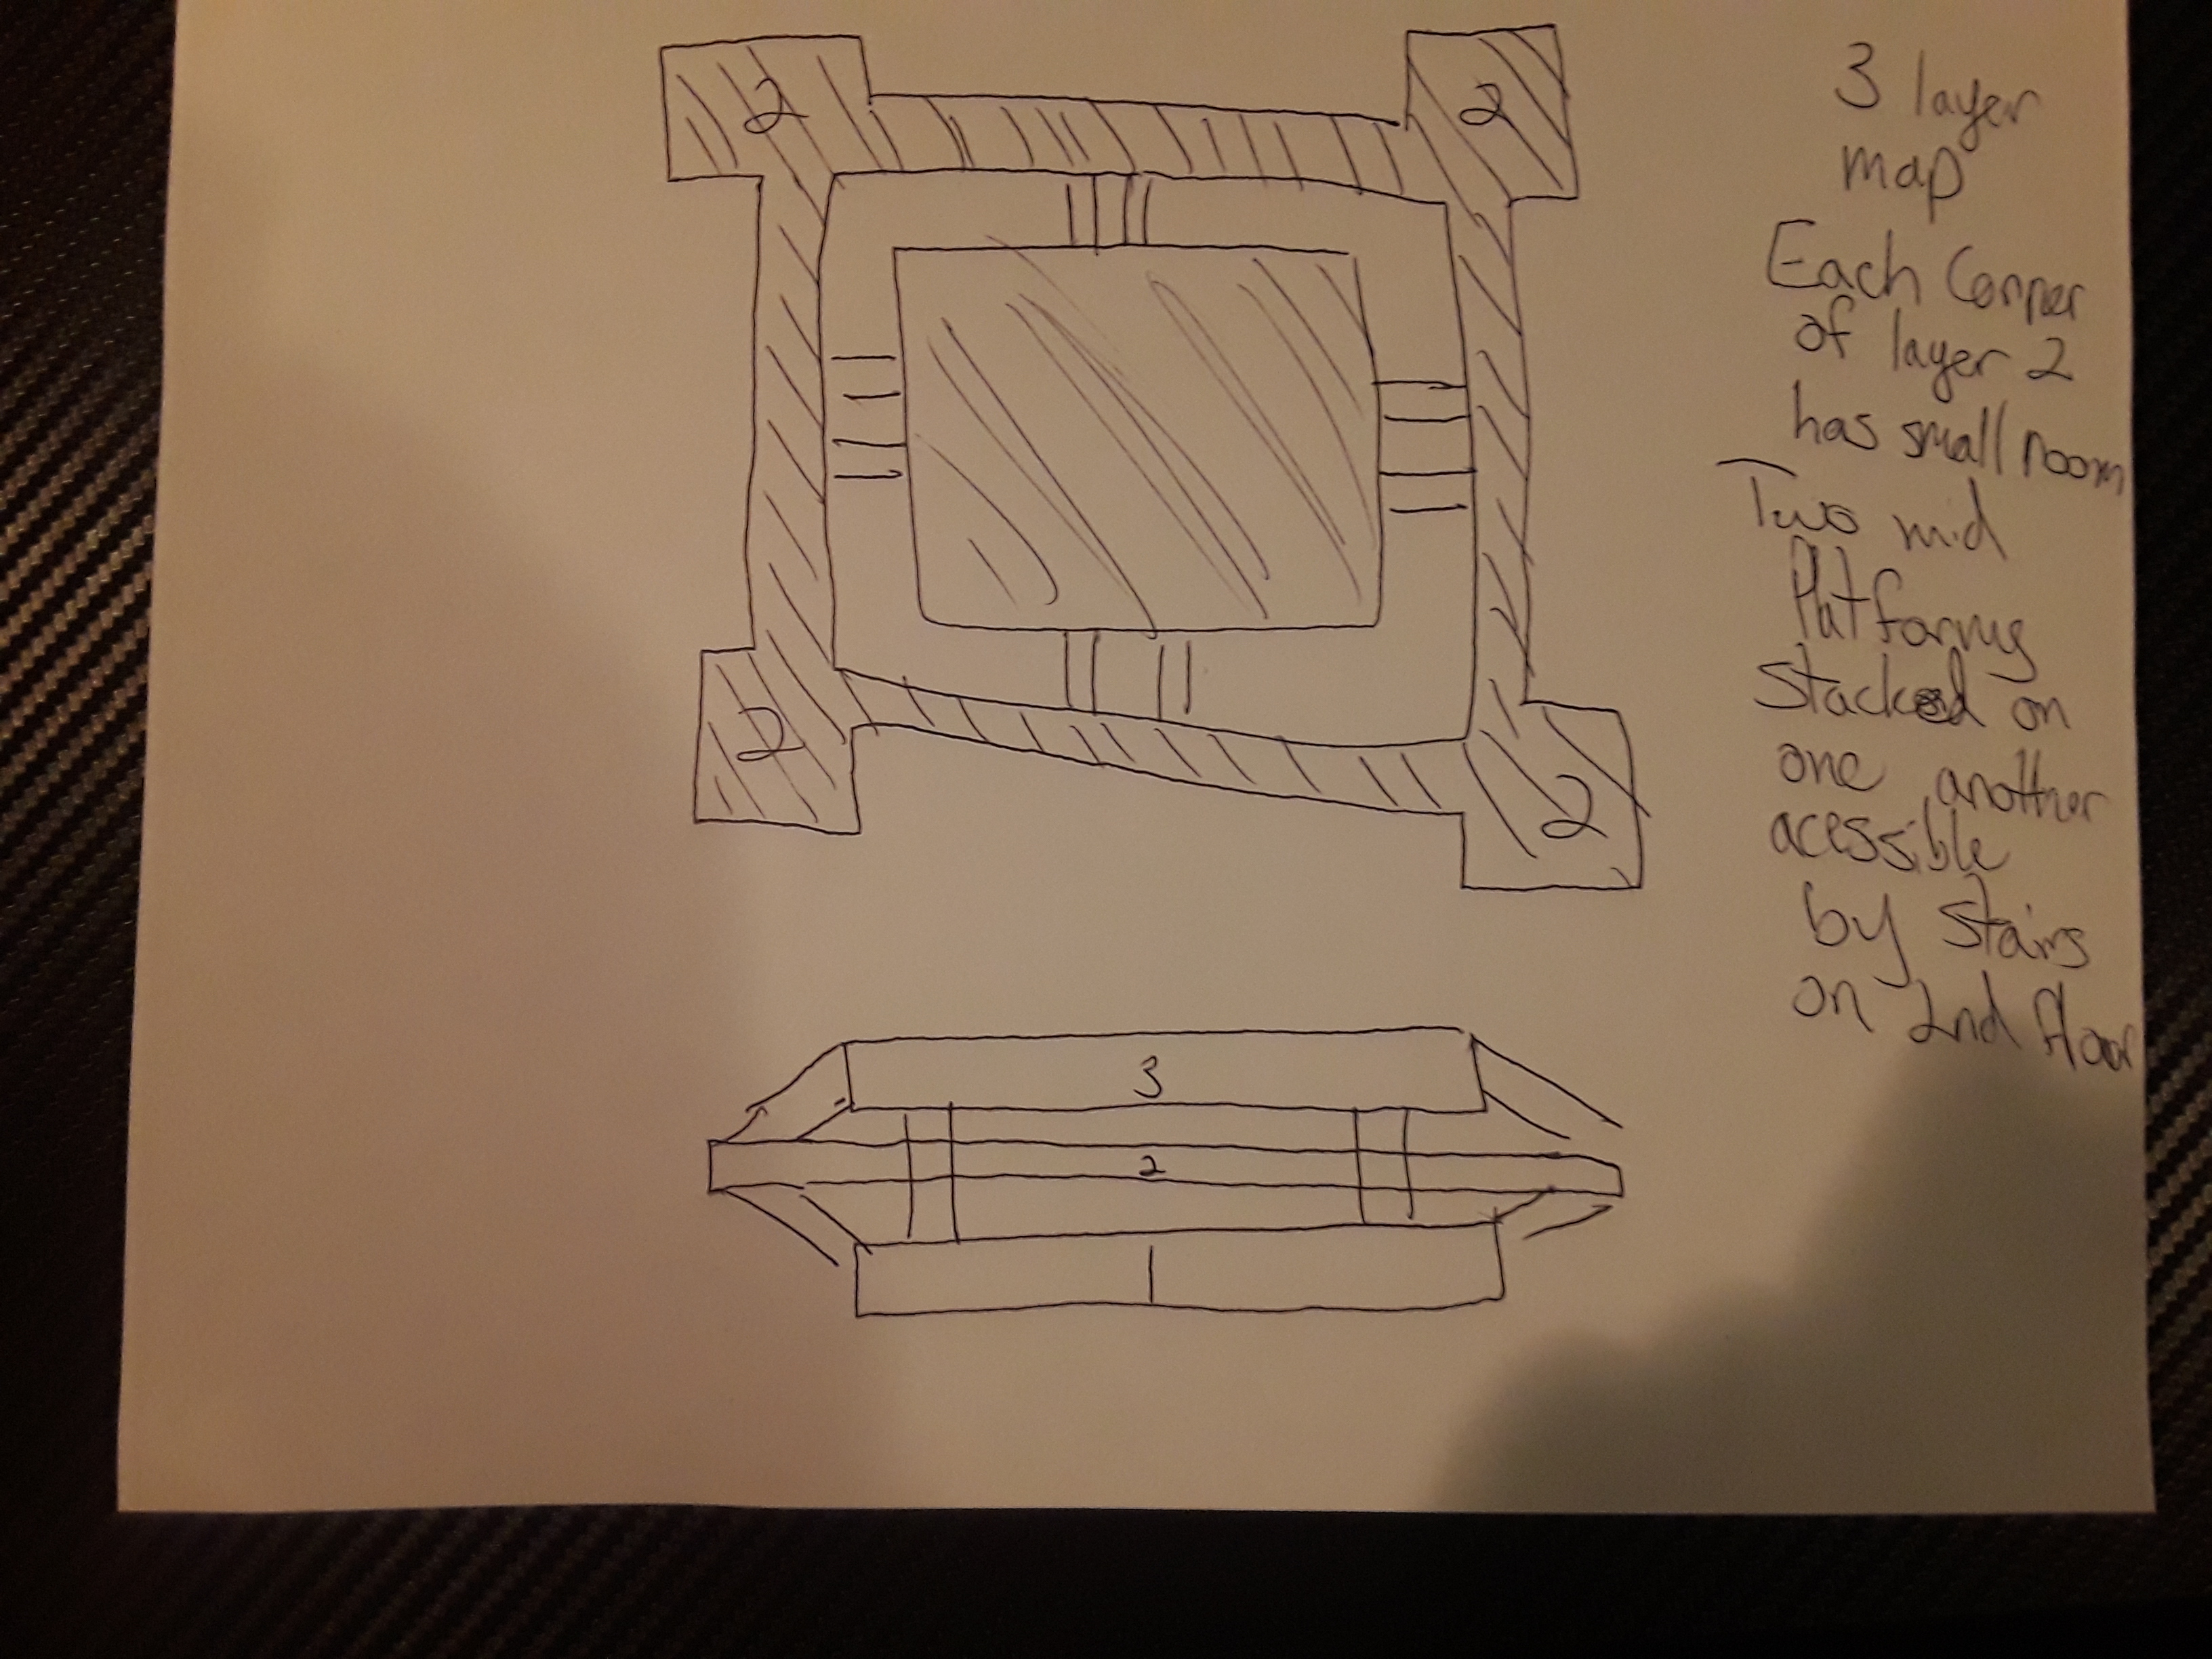 2
2
2
2
3
2
1
3 layer
map
Each Corner
of layer 2
has small room
Two mid
Platforms
stacked on
one another
acessible
by stairs
on 2nd floor